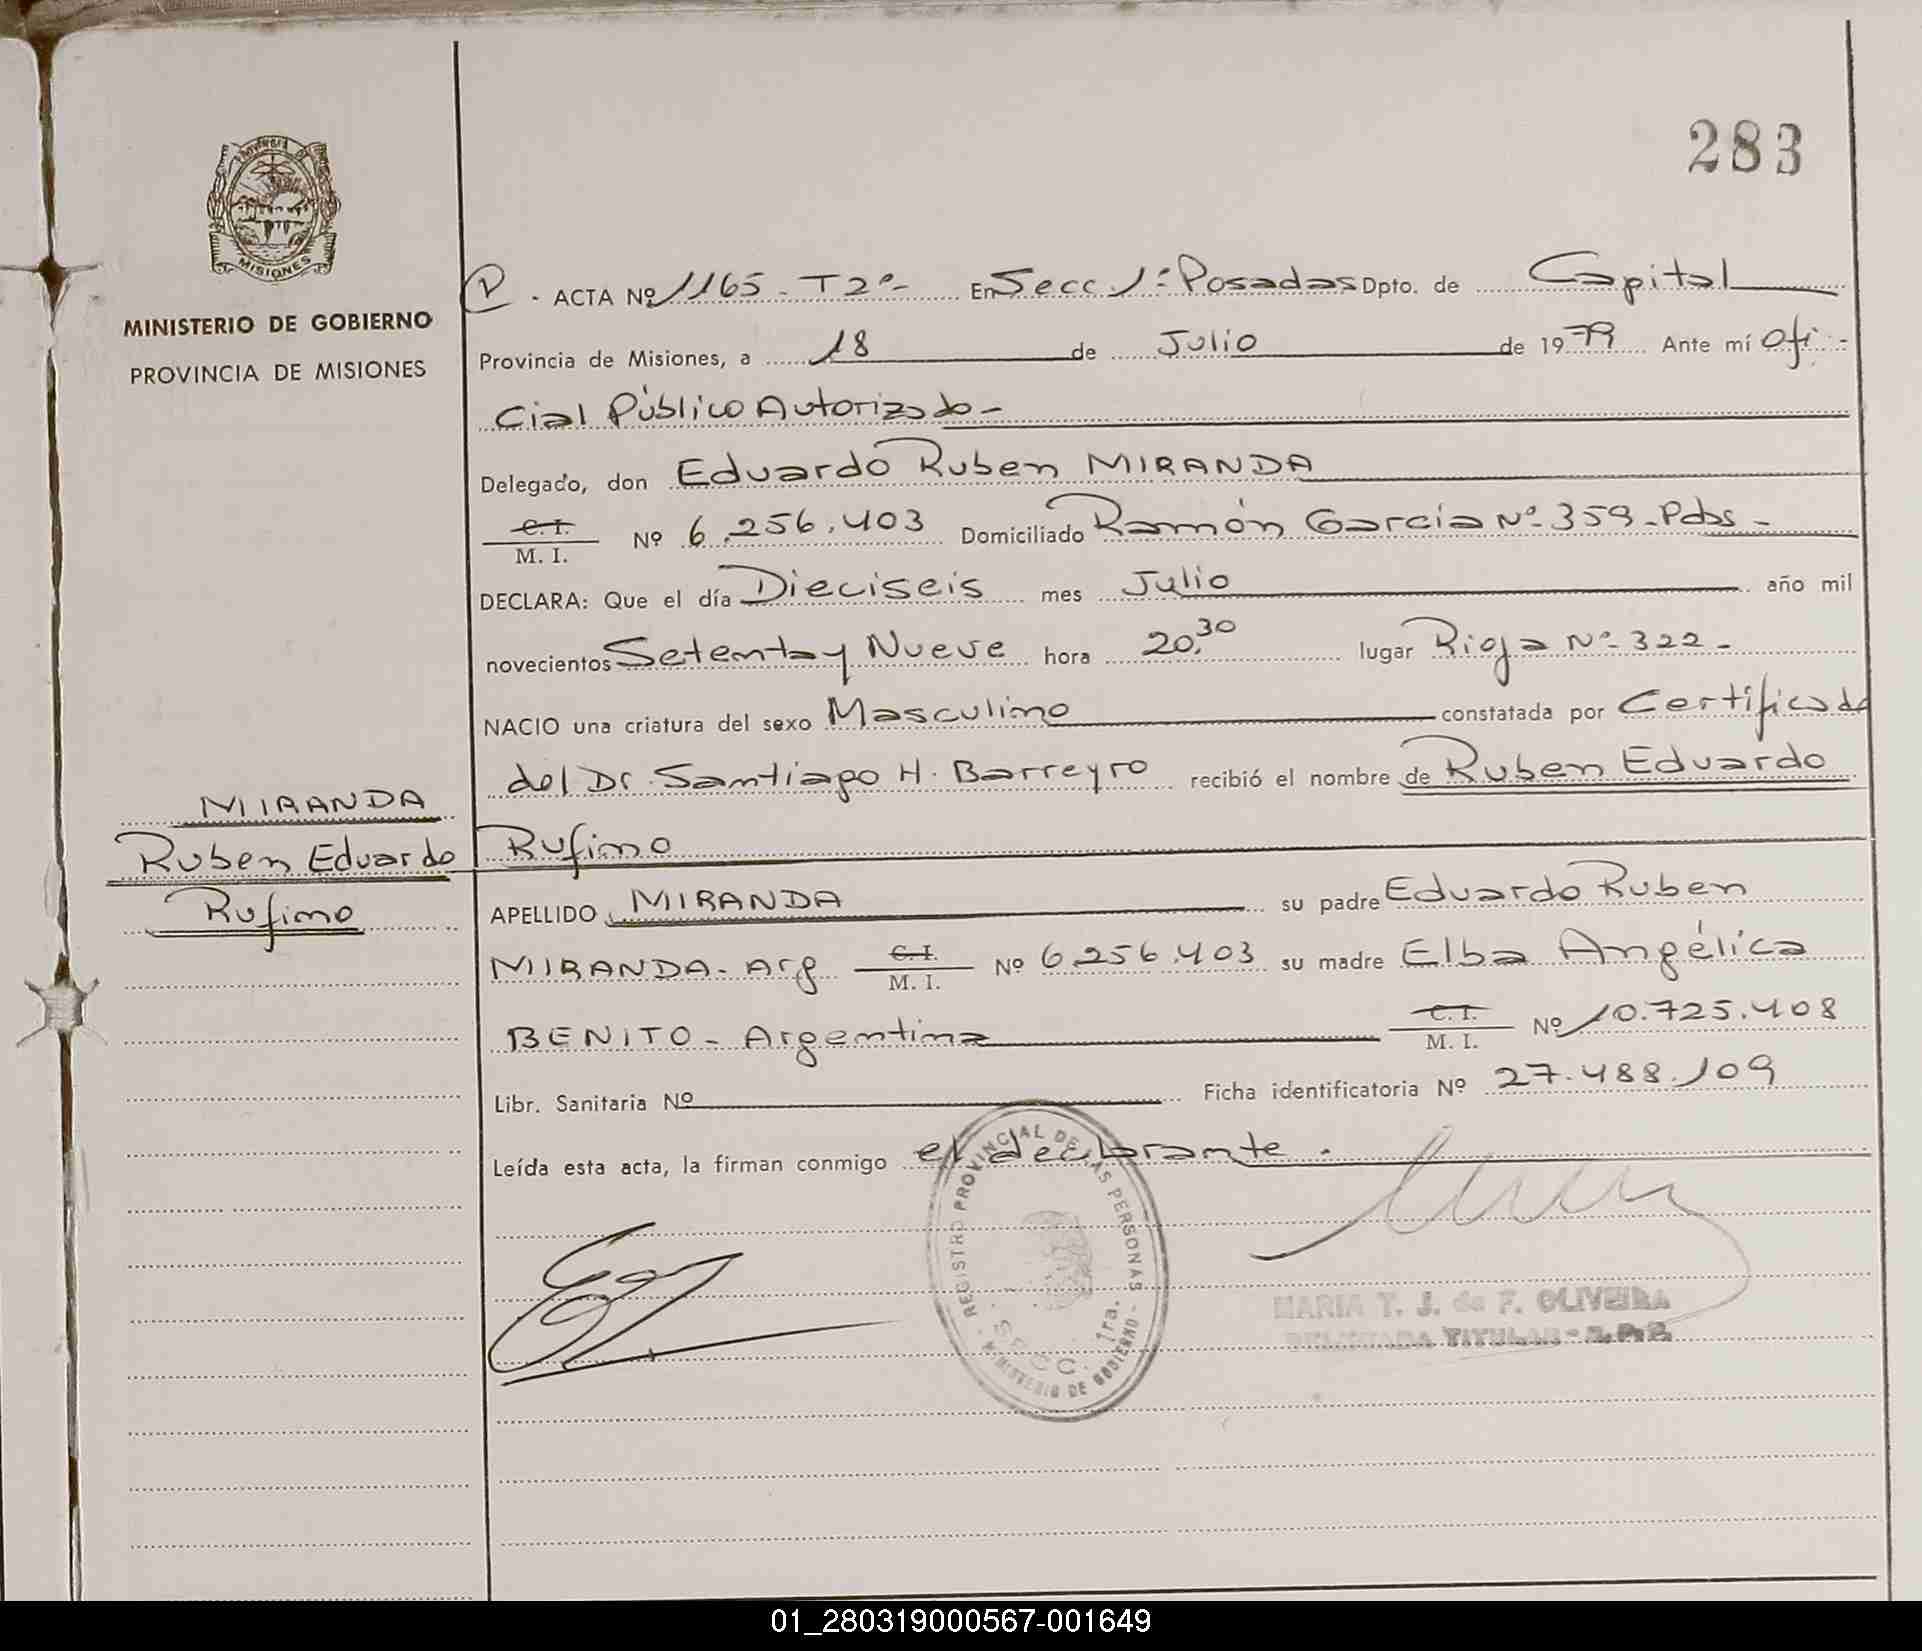 283
PROVINCIA DE
MISIONES
MINISTERIO DE GOBIERNO
PROVINCIA DE MISIONES
MIRANDA
Ruben Eduardo
Rufino
P - ACTA Nº 1165 - T2º- En Secc 1ª Posadas Dpto. de Capital
Provincia de Misiones, a 18 de Julio de 1979 Ante mí Ofi-
cial Público Autorizado-
Delegado, don Eduardo Ruben MIRANDA
C. I.
M. I. Nº 6.256.403 Domiciliado Ramón García Nº 359-Pdas-
DECLARA: Que el día Dieciseis mes Julio año mil
novecientos Setenta y Nueve hora 20.30 lugar Rioja Nº 322-
NACIO una criatura del sexo Masculino constatada por Certificado
del Dr. Santiago H. Barreyro recibió el nombre de Ruben Eduardo
Rufino
APELLIDO MIRANDA su padre Eduardo Ruben
MIRANDA- Arg C. I.
M. I. Nº 6.256.403 su madre Elba Angélica
BENITO- Argentina C. I.
M. I. Nº 10.725.408
Libr. Sanitaria Nº Ficha identificatoria Nº 27.488.109
Leída esta acta, la firman conmigo el declarante.
REGISTRO PROVINCIAL DE LAS PERSONAS
SECC. 1ra.
MINISTERIO DE GOBIERNO
MARIA T. J. de F. OLIVEIRA
DELEGADA TITULAR - R.P.P.
01_280319000567-001649